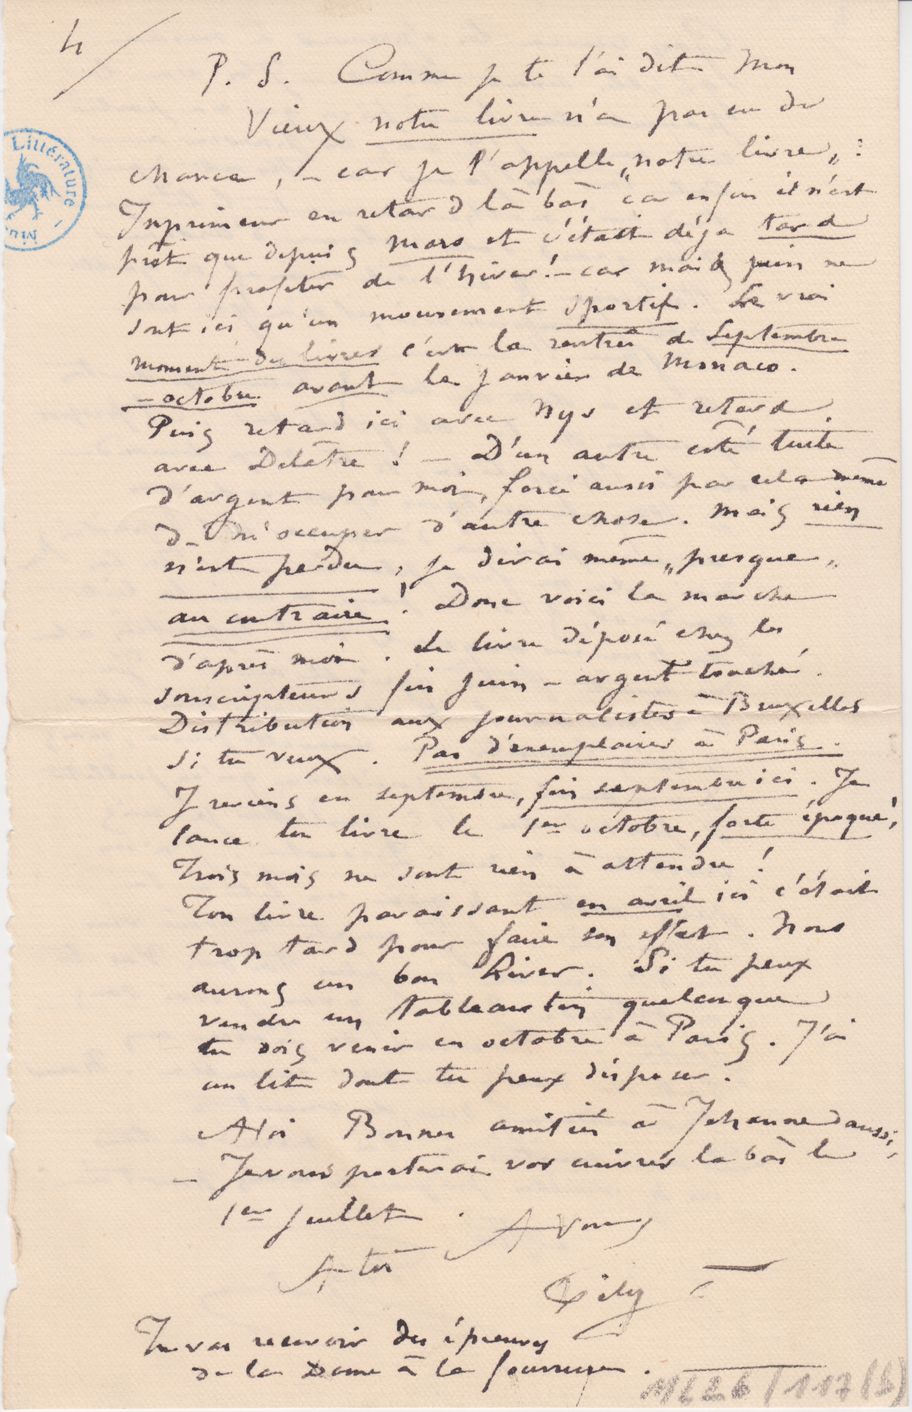 4/
P. S. Comme je te l'ai dit mon
Vieux notre livre n'a pas eu de
chance, – car je l'appelle „notre livre„ :
Imprimeur en retard là bas car enfin il n'est
prêt que depuis mars et c'était déja tard
pour profiter de l'hiver! – car mai & juin ne
sont ici qu'un mouvement sportif. Le vrai
moment des livres c'est la rentrée de Septembre
– octobre avant le janvier de Monaco.
Puis retard ici avec Nys et retard
avec Delâtre! – D'un autre côté
d'argent pour moi, forcé aussi par cela même
de m'occuper d'autre chose. Mais rien
n'est perdu, je dirai même „presque„
au contraire! Donc voici la marche
d'après moi. Le livre déposé chez les
souscripteurs fin juin – argent touché.
Distribution aux journalistes à Bruxelles
si tu veux. Pas d'exemplaires à Paris.
Je reviens en septembre, fin septembre ici. Je
lance ton livre le 1er octobre, forte époque!
Trois mois ne sont rien à attendre!
Ton livre paraissant en avril ici c'était
trop tard pour faire son effet. Nous
aurons un bon hiver. Si tu peux
vendre un tableautin quelconque
tu dois venir en octobre à Paris. J'ai
un lit dont tu peux disposer.
A toi Bonnes amitiés à Jehanne aussi,
– Je vous porterai vos cuivres là bas le
1er juillet. A vous
Fély
Tu vas recevoir des épreuves
de la Dame à la fourrure.
Littérature
ML 26 / 117 (5)